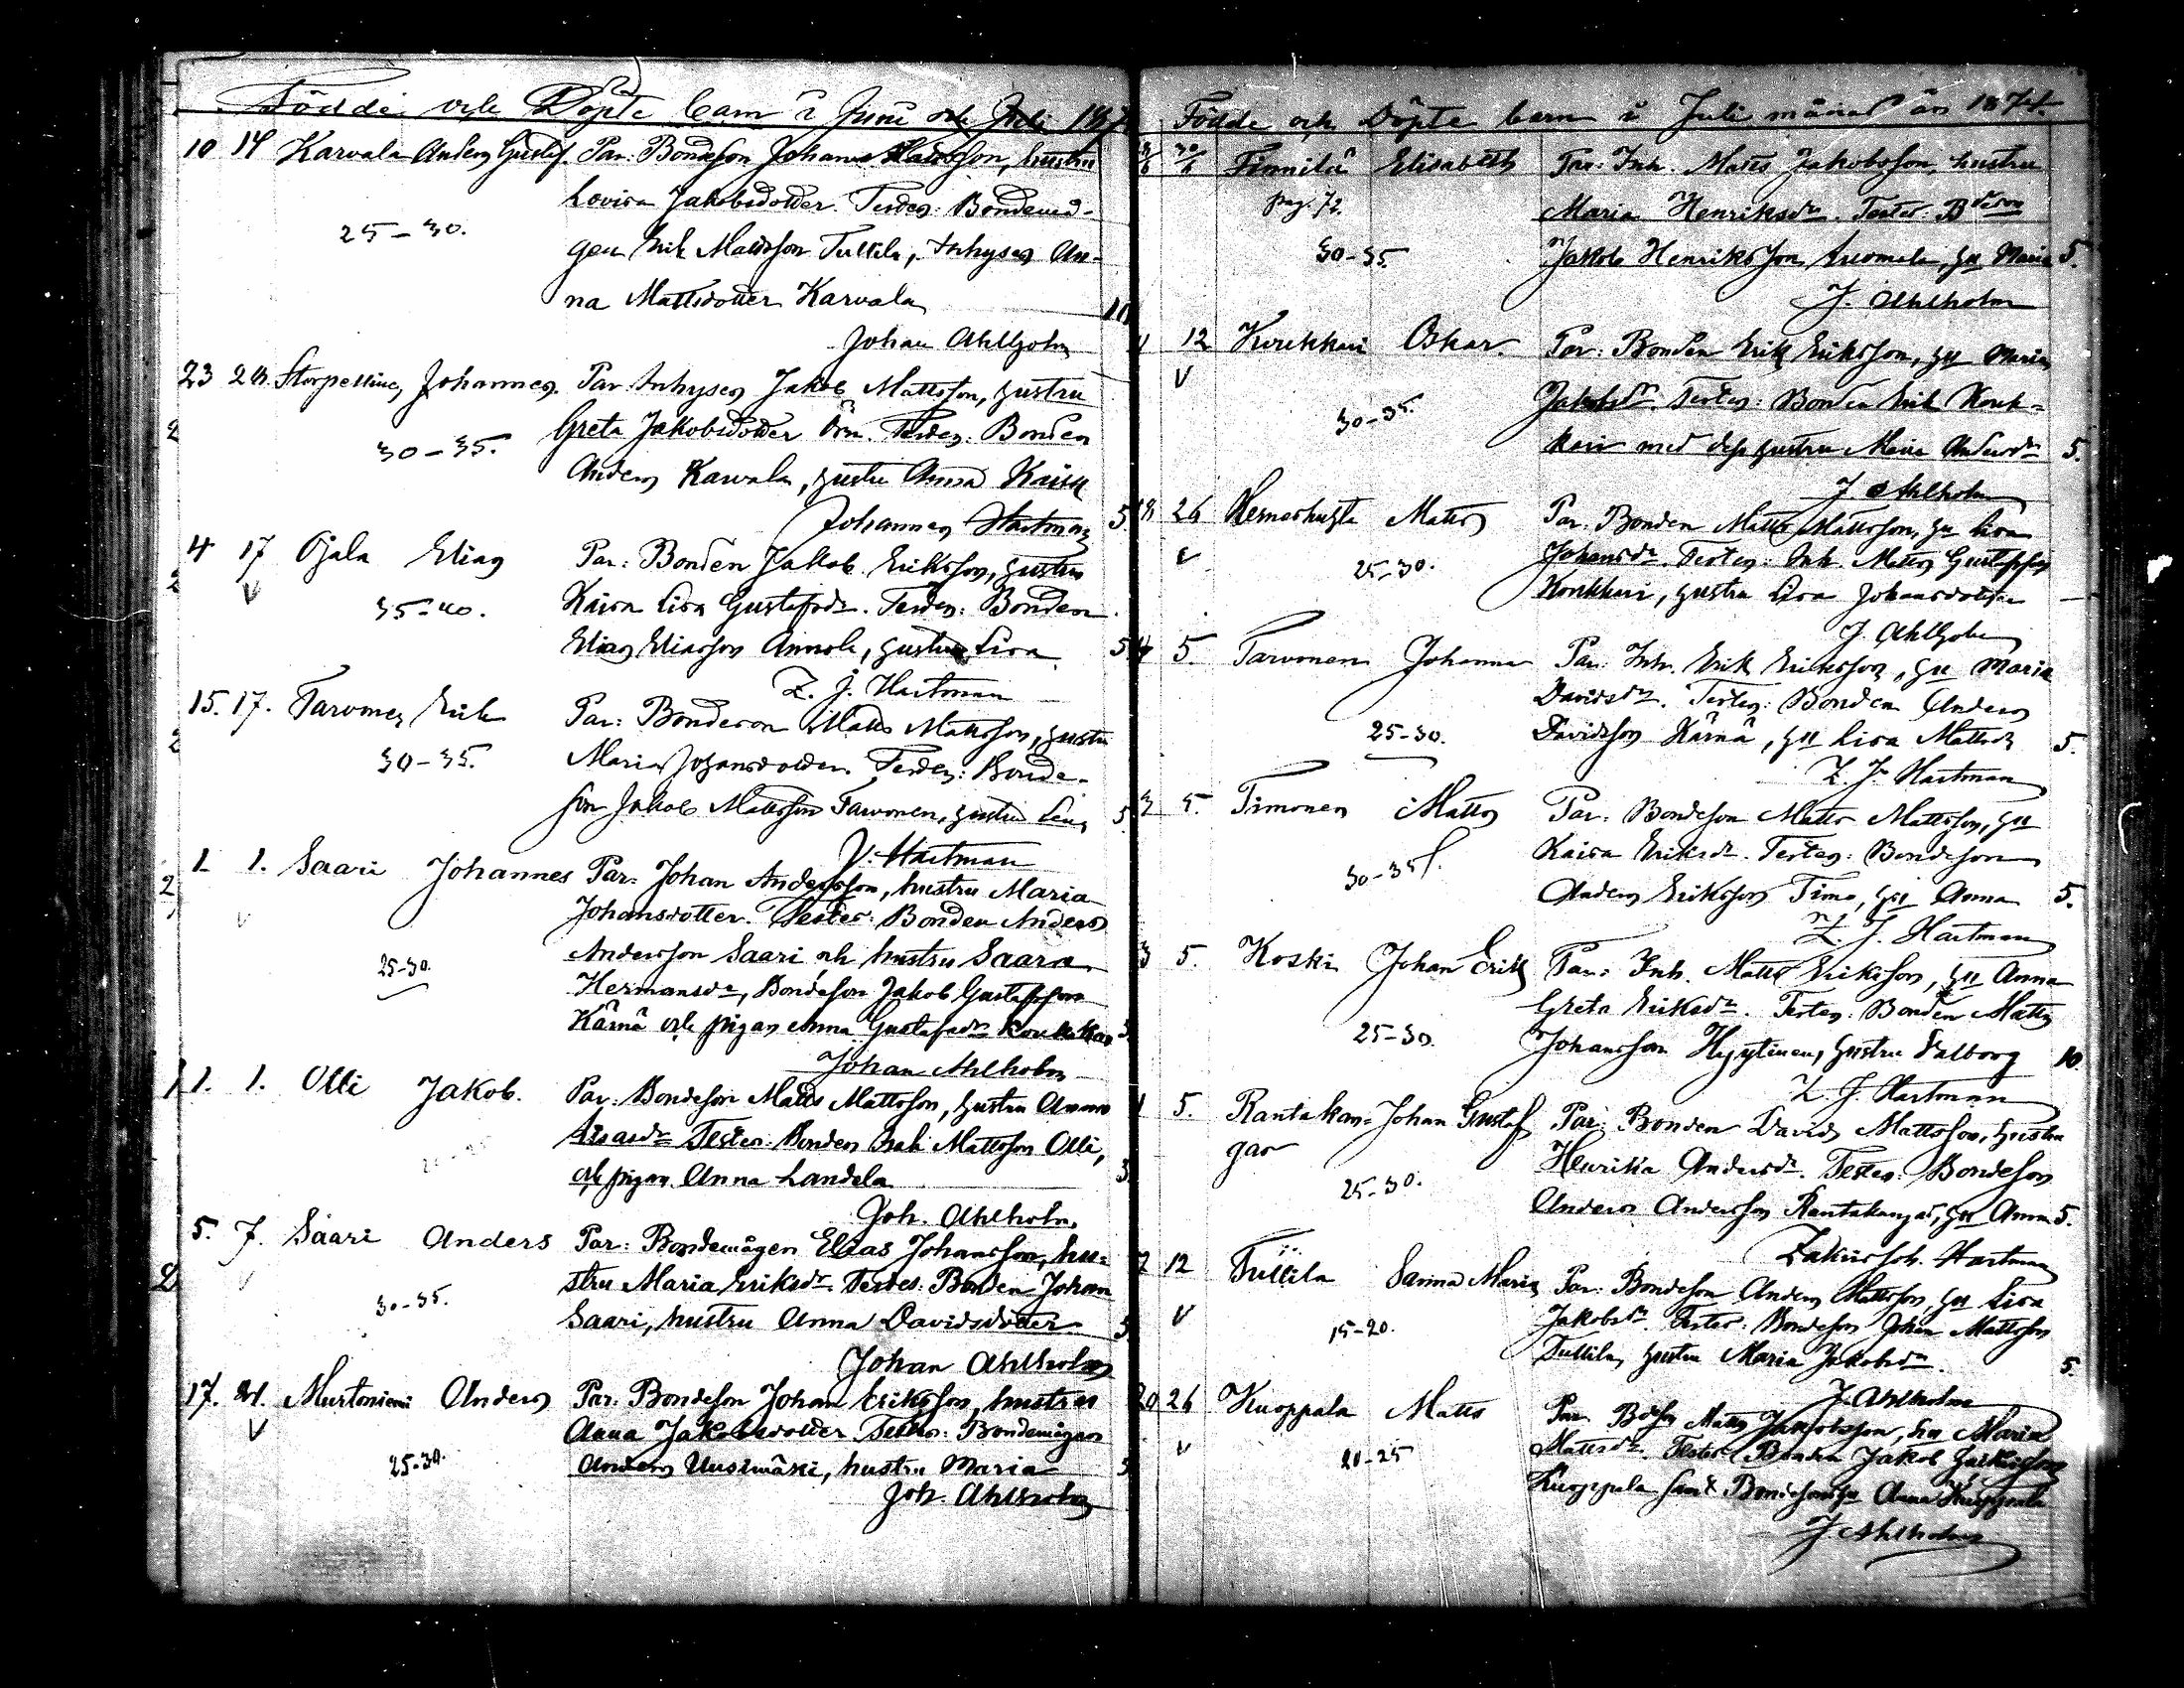 Födde och Döpte barn i Juni och Juli 187
10 14 Karvala Anders Gustaf. Par: Bondeson Johan Mattsson, hustru
Lovisa Jakobsdotter. Testes: Bondemå-
25-30.
gen Erik Mattsson Tullila, Inhyses An-
na Mattsdotter Karvala 10
Johan Ahlholm
23 28. Storpelline, Johannes. Par: Inhyses Jakob Mattsson, hustru
Greta Jakobsdotter Örn. Testes: Bonden
30-35.
Anders Karvala, hustru Anna Kaisa 5
Johannes Hartman
4 17 Ojala Elias Par: Bonden Jakob Eriksson, hustru
V
35-40. Kaisa Lisa Gustafsdr. Testes: Bonden
Elias Eliasson Annola, hustru Lisa 5
Z. J. Hartman
15. 17. Tarvonen Erik Par: Bondeson Matts Mattsson, hustru
30-35. Maria Johansdotter. Testes: Bonde-
son Jakob Mattsson Tarvonen, hustru Lena 5.
J. Hartman
1 1. Saari Johannes Par: Johan Andersson, hustru Maria
Johansdotter. Testes: Bonden Anders
V
25-30. Andersson Saari och hustru Saara
Hermansdr, Bondeson Jakob Gustafsson
Kärnä och pigan Anna Gustafsdr
Johan Ahlholm
1. 1. Olli Jakob. Par: Bondeson Matts Mattsson, hustru Anna
Testes: Bonden Erik Mattsson Olli,
och pigan Anna Landela
Joh. Ahlholm.
5. 7. Saari Anders Par: Bondemågen Elias Johansson, hu-
stru Maria Eriksdr. Testes: Bonden Johan
30-35.
Saari, hustru Anna Davidsdotter 5
Johan Ahlholm
17. 21. Murtoniemi Anders Par: Bondeson Johan Eriksson, hustru
V
Anna Jakobsdotter Testes: Bondemågen
25-30. Anders Uusimäki, hustru Maria 5
Joh. Ahlholm
Födde och Döpte barn i Juli månad år 1874.
Finnilä Elisabeth Par: Inh. Matts Jakobsson, hustru
pag. 72. Maria Henriksdr. Testes:
30-35. Jakob Henriksson Luomala, hu Maria 5.
J. Ahlholm
12 Kurkkari Oskar. Par: Bonden Erik Eriksson, hu Maria
V
30-35. Jakobsdr. Testes: Bonden Erik Kurk-
kari med dess hustru Maria Andersdr 5.
J. Ahlholm
18 26 Herneshuhta Matts Par: Bonden Matts Mattsson, hu Lisa
V
25-30. Johansdr. Testes: Inh. Matts Gustafsson
hustru Lisa Johansdotter
J. Ahlholm
5. Tarvonen Johanna Par: Inh. Erik Eriksson, hu Maria
Davidsdr. Testes: Bonden Anders
25-30. Davidsson Kärnä, hu Lisa Mattsdr 5.
Z. J. Hartman
3 5. Timonen Matts Par: Bondeson Matts Mattsson, hu
Kaisa Eriksdr. Testes: Bondeson
30-35.
Anders Eriksson Timo, hu Anna 5.
Z. J. Hartman
3 5. Koski Johan Erik Par: Inh. Matts Eriksson, hu Anna
Greta Eriksdr. Testes: Bonden Matts
25-30. Johansson Hyytinen, hustru Valborg 10.
Z. J. Hartman
5. Rantakan- Johan Gustaf Par: Bonden David Mattsson, hustru
gas Henrika Andersdr. Testes: Bondeson
25-30.
Anders Andersson Rantakangas, hu Anna 5.
Zakris Joh. Hartman
12 Tullila Sanna Maria Par: Bondeson Anders Mattsson, hu Lisa
V
15-20. Jakobsdr. Testes: Bondeson Johan Mattsson
Tullila, hustru Maria Jakobsdr. 5.
J. Ahlholm
20 26 Kuoppala Matts Par: Matts Jakobsson, hu Maria
V
20-25 Mattsdr. Testes: Bonden Jakob
Kuoppala samt Bondesonhu Anna Kuoppala
J. Ahlholm